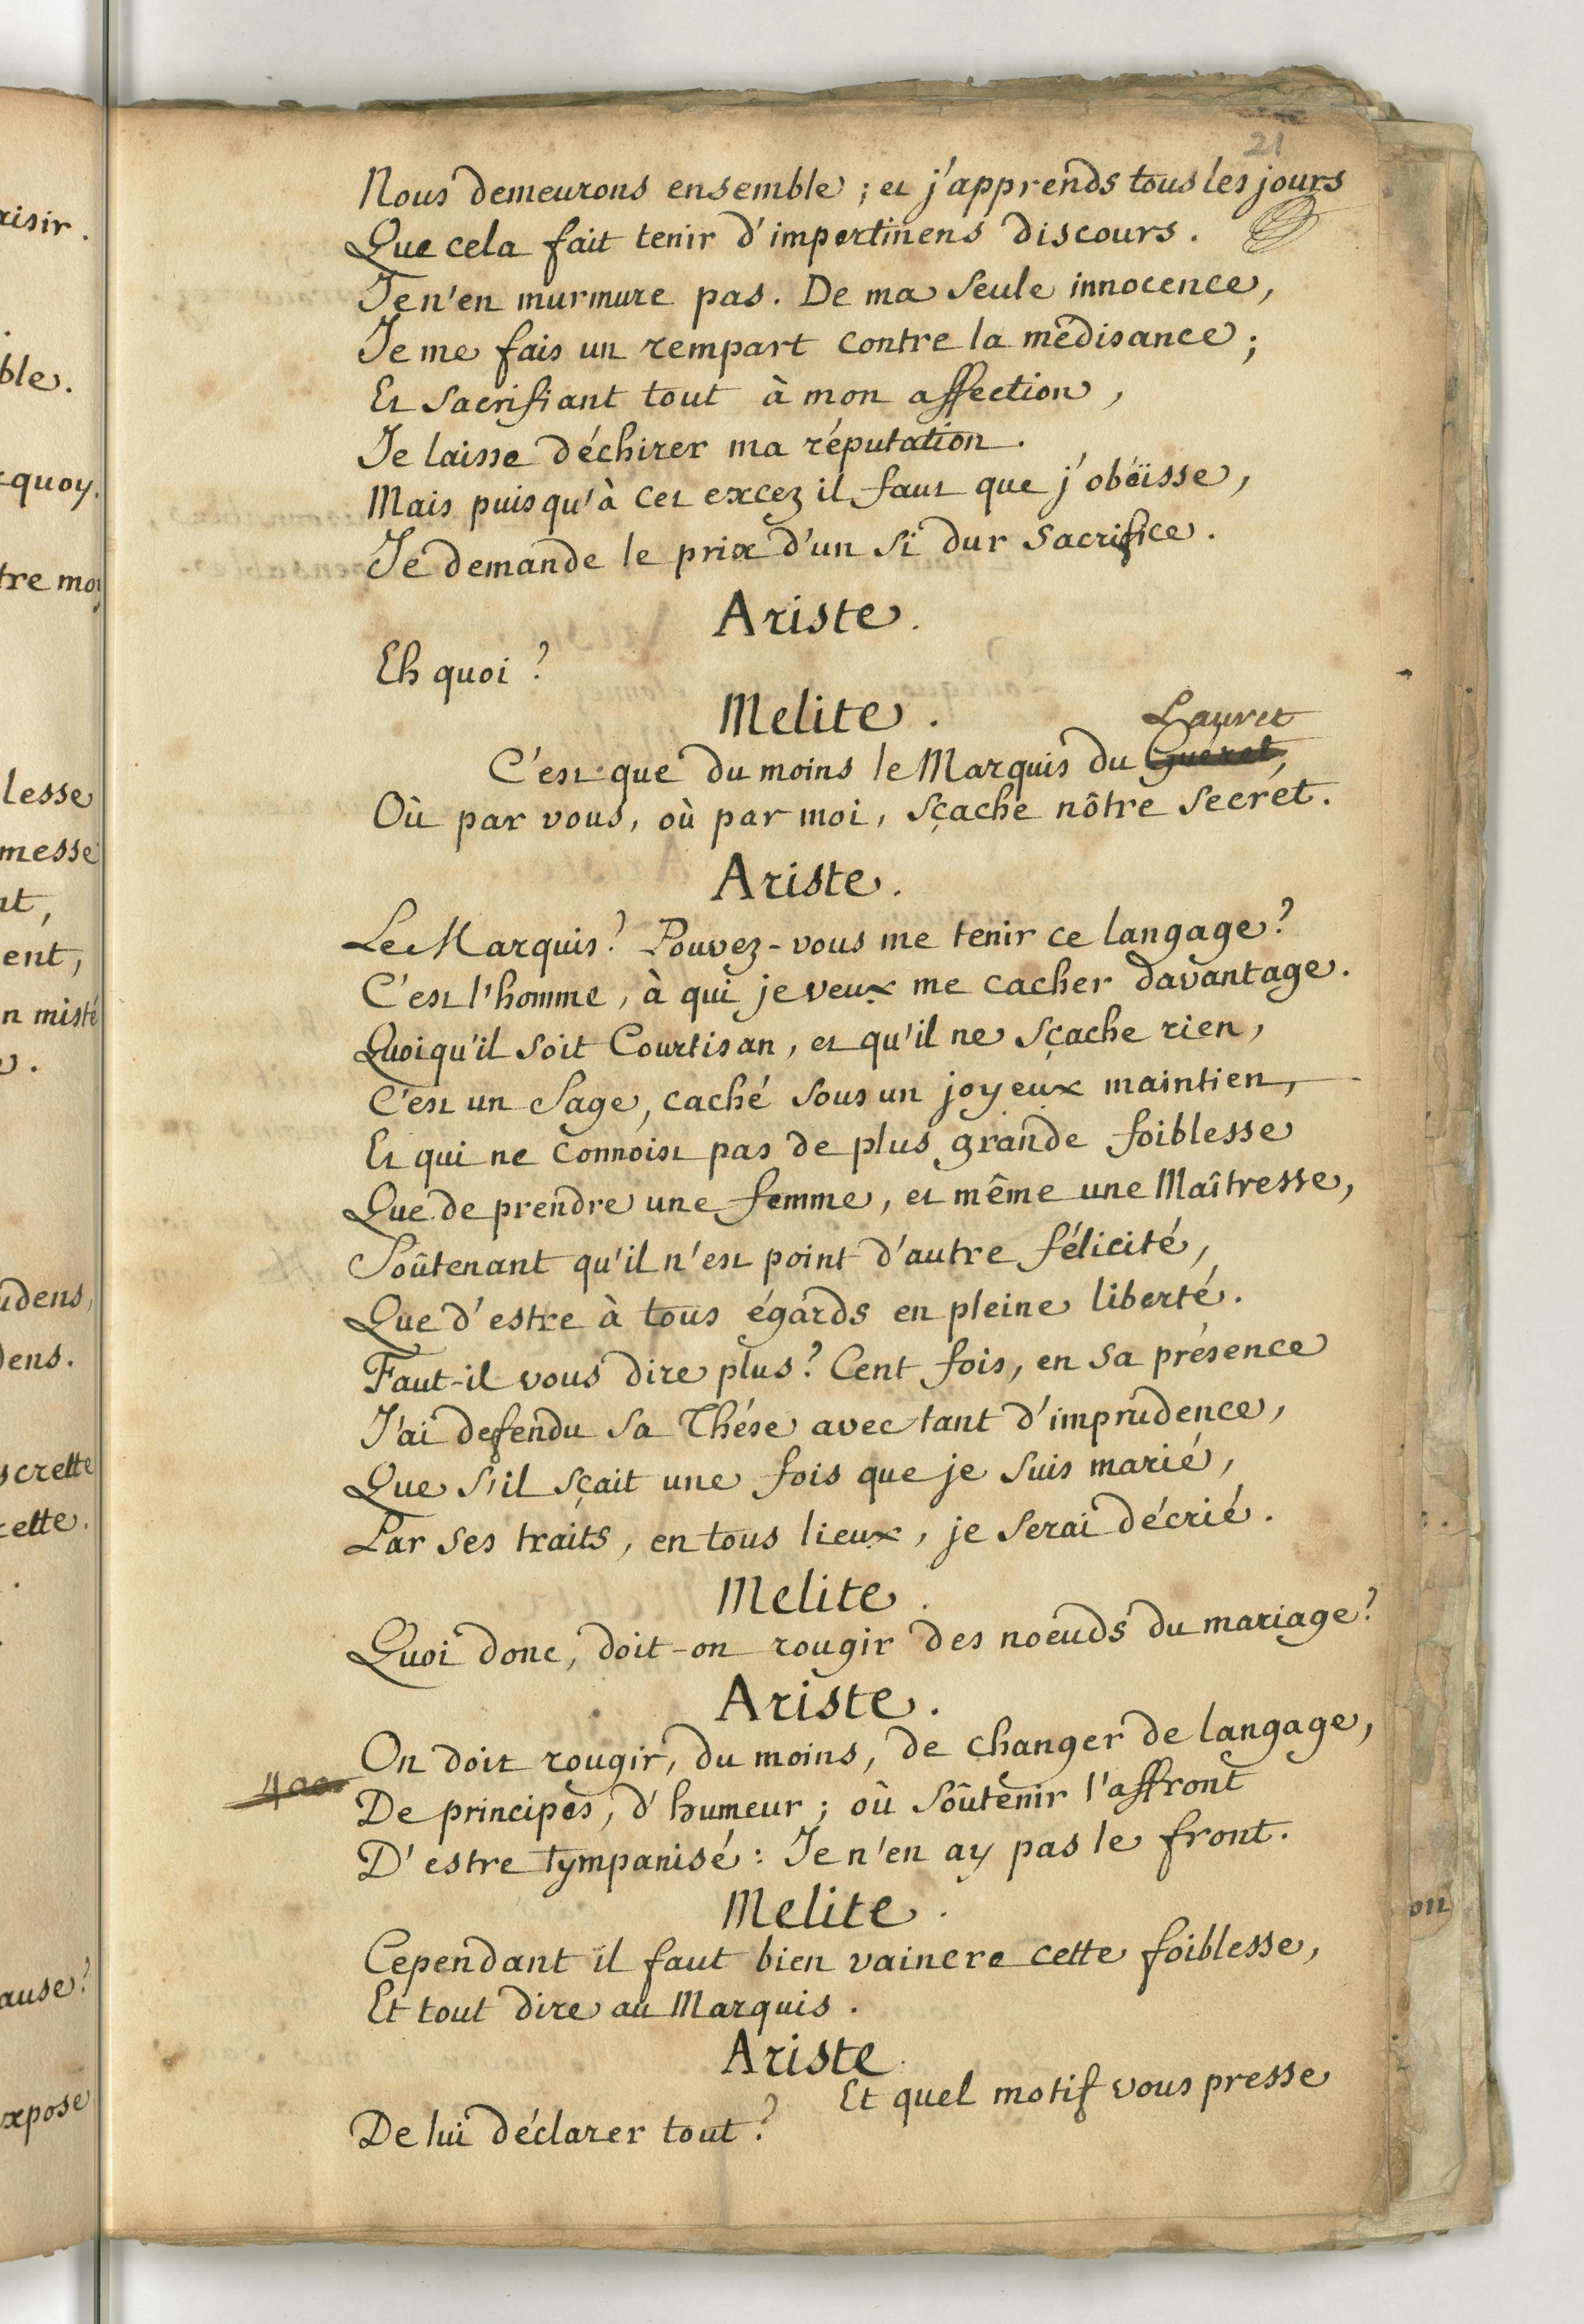 21
Nous demeurons ensemble ; et j'apprends tous les jours
Que cela fait tenir d'impertinens discours .
Je n'en murmure pas . De ma seule innocence ,
Je me fais un rempart contre la médisance ;
Et sacrifiant tout à mon affection ,
Je laisse déchirer ma réputation .
Mais puisqu'à cet excez il faut que j'obéïsse ,
Je demande le prix d'un si dur sacrifice .
Ariste .
Eh quoi ?
Melite .
Lauret
C'est que du moins le Marquis du Guéret,
Où par vous, où par moi, sçache nôtre secrét .
Ariste .
Le Marquis ? Pouvez-vous me tenir ce langage ?
C'est l'homme, à qui je veux me cacher davantage .
Quoiqu'il soit Courtisan, et qu'il ne sçache rien,
C'est un Sage, caché sous un joyeux maintien,
Et qui ne connoist pas de plus grande foiblesse
Que de prendre une femme, et même une Maîtresse,
Soûtenant qu'il n'est point d'autre félicité,
Que d'estre à tous égards en pleine liberté .
Faut-il vous dire plus ? Cent fois, en sa présence
J'ai defendu sa Thése avec tant d'imprudence,
Que s'il sçait une fois que je suis marié,
Par ses traits, en tous lieux, je serai décrié .
Melite .
Quoi donc, doit-on rougir des noeuds du mariage ?
Ariste .
On doit rougir, du moins, de changer de langage,
400
De principes, d'humeur ; où soûtenir l'affront
D'estre tympanisé : Je n'en ay pas le front .
Melite .
Cependant il faut bien vaincre cette foiblesse,
Et tout dire au Marquis .
Ariste .
Et quel motif vous presse
De lui déclarer tout ?
aisir .
ble .
quoy .
tre moy
lesse
messe
nt,
ent,
n misté
udens,
dens .
screte
ette .
ause ?
xpose
on